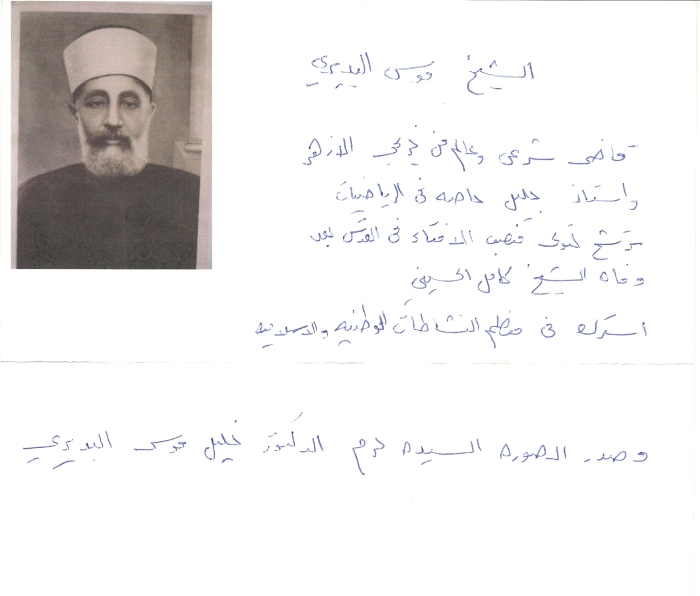 الشيخ موسى البديري
قاضي شرعي وعالم من خريجي الازهر
واستاذ جليل خاصه في الرياضيات
ترشح لتولى منصب الافتاء في القدس بعد
وفاة الشيخ كامل الحسيني
اشترك في معظم النشاطات الوطنيه والاسلاميه
مصدر الصوره السيده حرم الدكتور خليل موسى البديري